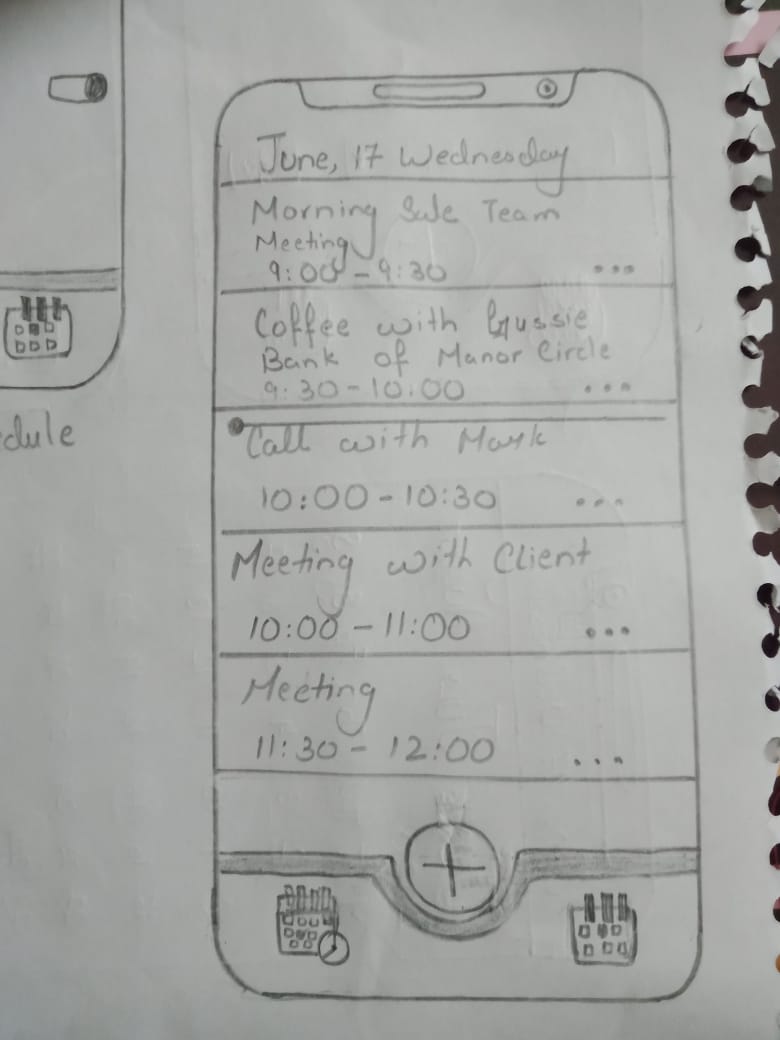 June, 17 Wednesday
Morning Sale Team
Meeting
9:00 - 9:30
...
Coffee with Gussie
Bank of Manor Circle
9:30 - 10:00
...
Call with Mark
10:00 - 10:30
...
Meeting with Client
10:00 - 11:00
...
Meeting
11:30 - 12:00
...
dule